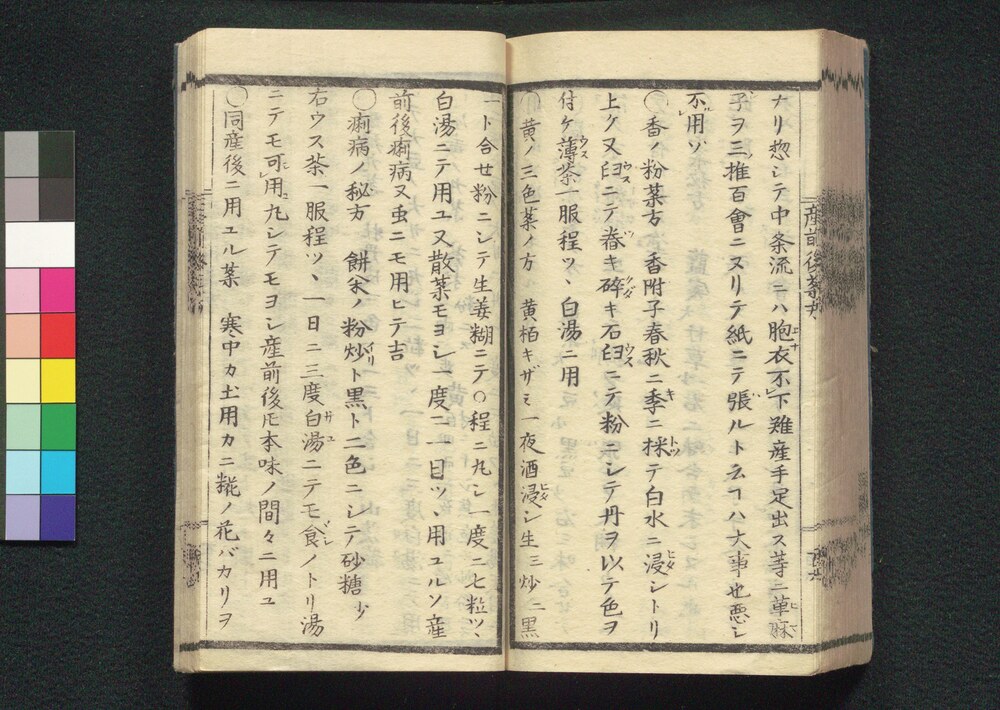 ナリ惣シテ中条流ニハ胞衣不下難産手足出ス䓁ニ萆麻
子ヲ三推百會ニヌリテ紙ニテ張ルト云フハ大事也悪シ
不用ソ
○香ノ粉薬方 香附子春秋ニ季ニ採テ白水ニ浸シトリ
上ケ又臼ニテ舂キ碎キ石臼ニテ粉ニシテ丹ヲ以テ色ヲ
付ケ薄茶一服程ツヽ白湯ニ用
○黄ノ三色薬ノ方 黄栢キザミ一夜酒浸シ生三炒二黒
一ト合せ粉ニシテ生姜糊ニテ○程ニ丸シ一度ニ七粒ツヽ
白湯ニテ用ユ又散薬モヨシ一度ニ一目ツヽ用ユルソ産
前後痢病又虫ニモ用ヒテ吉
○痢病ノ秘方 餅米ノ粉炒ト黒ト二色ニシテ砂糖少
右ウス茶一服程ツヽ一日ニ三度白湯ニテモ食ノトリ湯
ニテモ可用丸シテモヨシ産前後圧本味ノ間々ニ用ユ
○同産後ニ用ユル薬 寒中カ土用カニ糀ノ花バカリヲ
産前後薬方